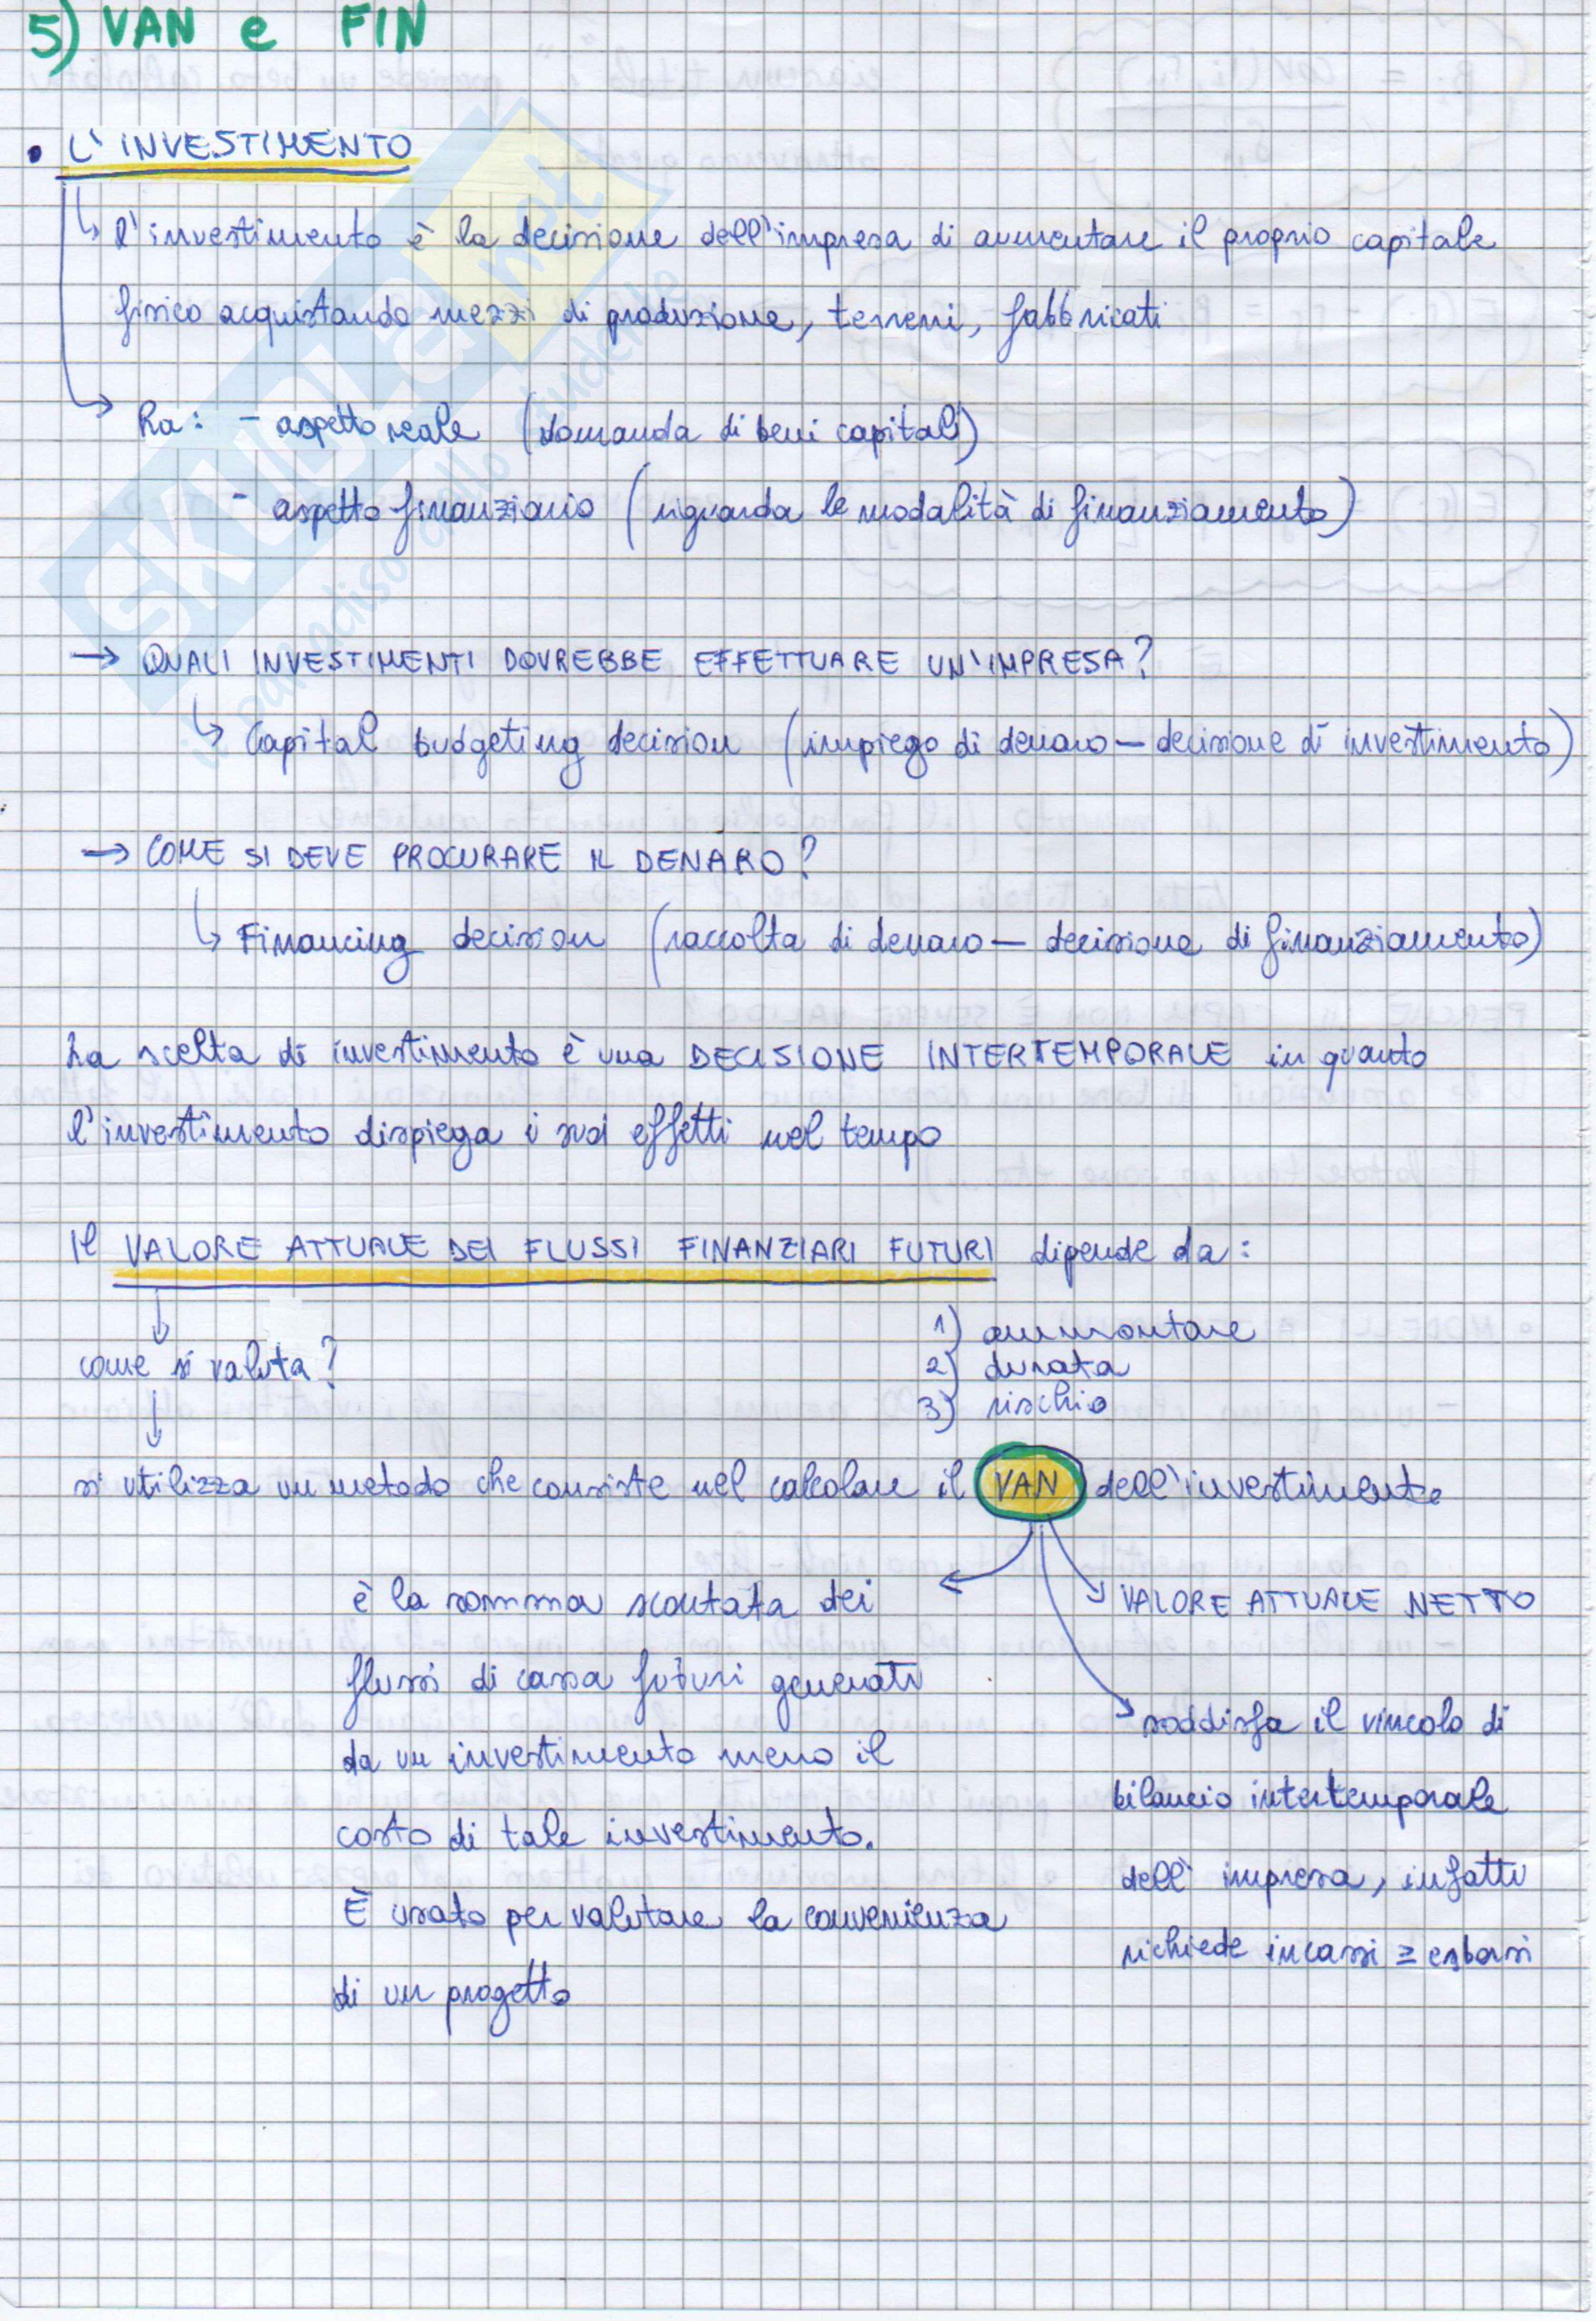 5) VAN e FIN
• L'INVESTIMENTO
l'investimento è la decisione dell'impresa di aumentare il proprio capitale
fisico acquistando mezzi di produzione, terreni, fabbricati
ha: - aspetto reale (domanda di beni capitali)
- aspetto finanziario (riguarda le modalità di finanziamento)
→ QUALI INVESTIMENTI DOVREBBE EFFETTUARE UN'IMPRESA?
↳ Capital budgeting decision (impiego di denaro – decisione di investimento)
→ COME SI DEVE PROCURARE IL DENARO?
↳ Financing decision (raccolta di denaro – decisione di finanziamento)
La scelta di investimento è una DECISIONE INTERTEMPORALE in quanto
l'investimento dispiega i suoi effetti nel tempo
Il VALORE ATTUALE DEI FLUSSI FINANZIARI FUTURI dipende da:
1) ammontare
come si valuta?
2) durata
3) rischio
si utilizza un metodo che consiste nel calcolare il VAN dell'investimento
è la somma scontata dei
flussi di cassa futuri generati
da un investimento meno il
costo di tale investimento.
È usato per valutare la convenienza
di un progetto
VALORE ATTUALE NETTO
soddisfa il vincolo di
bilancio intertemporale
dell'impresa, infatti
richiede incassi ≥ esborsi
SKUOLA.net
il paradiso dello studente